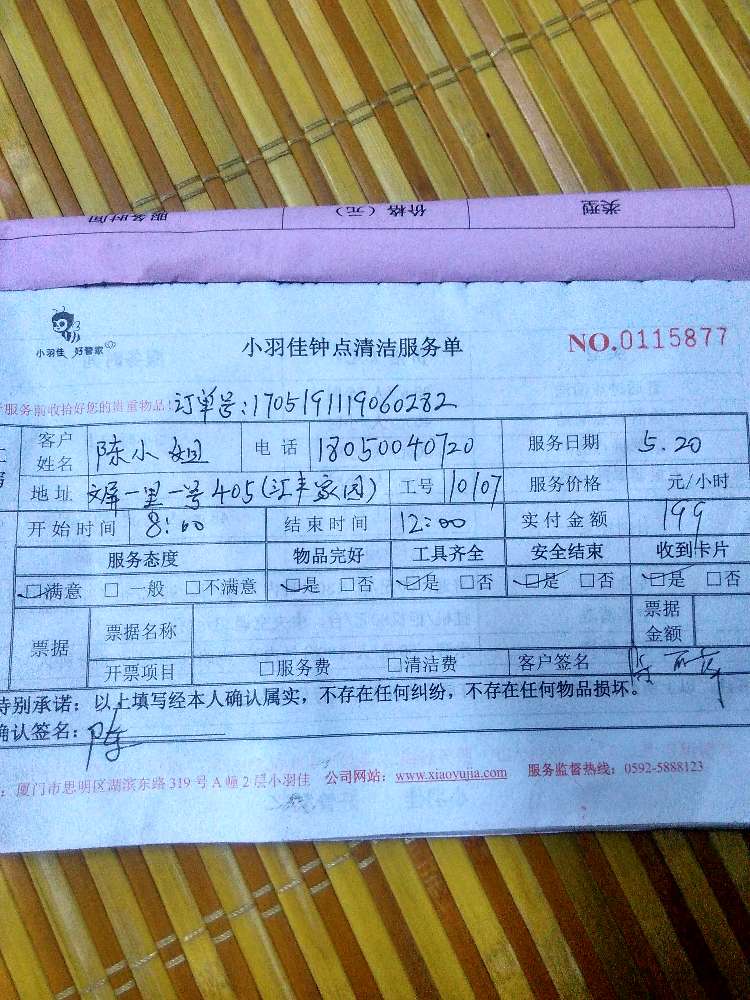 服务时间 价格（元） 类型
小羽佳 好管家
小羽佳钟点清洁服务单 NO.0115877
服务前收拾好您的贵重物品! 订单号:1705191119060282
客户姓名 陈小姐 电话 18050040720 服务日期 5.20
地址 文屏一里一号405(汇丰家园) 工号 10107 服务价格 元/小时
开始时间 8:00 结束时间 12:00 实付金额 199
服务态度 物品完好 工具齐全 安全结束 收到卡片
☑满意 □一般 □不满意 ☑是 □否 ☑是 □否 ☑是 □否 ☑是 □否
票据 票据名称 票据金额
开票项目 □服务费 □清洁费 客户签名
特别承诺：以上填写经本人确认属实，不存在任何纠纷，不存在任何物品损坏。
确认签名：陈
：厦门市思明区湖滨东路319号A幢2层小羽佳 公司网站：www.xiaoyujia.com 服务监督热线：0592-5888123